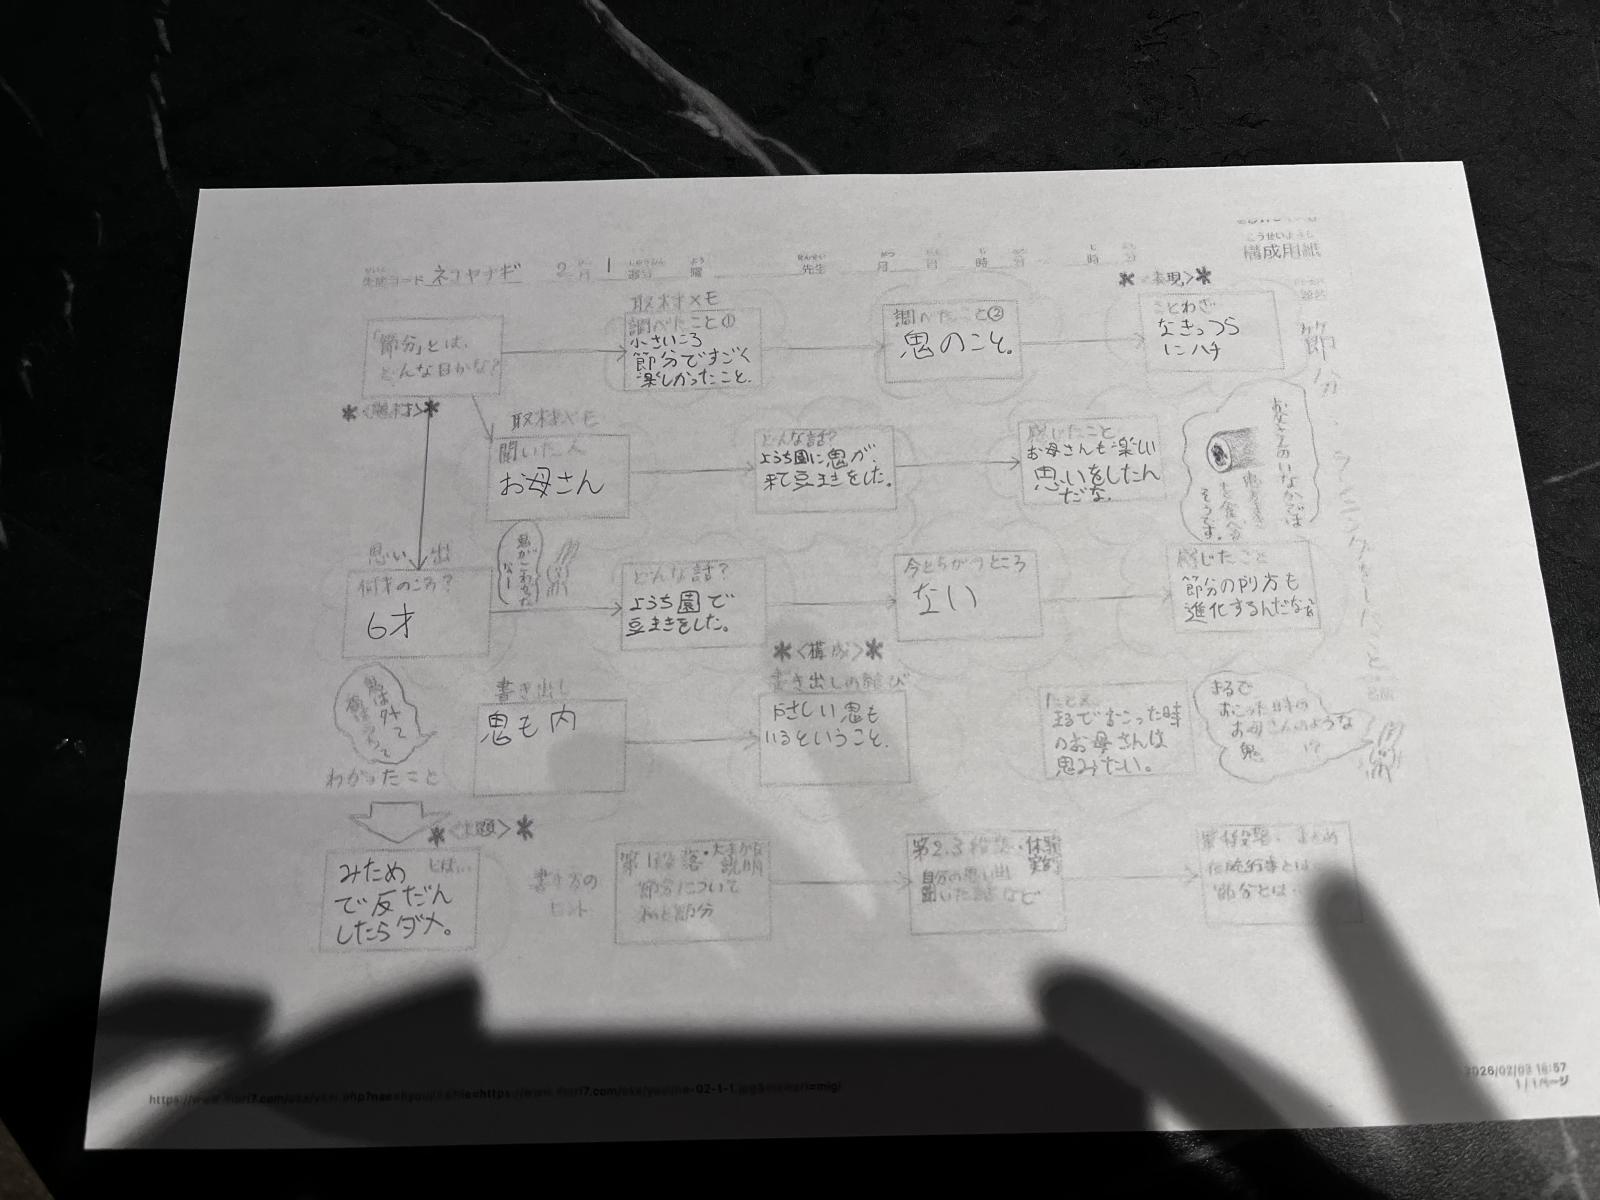 構成用紙
生徒コード ネコヤナギ 2月 1週分 曜 先生 月 日 時 分 時 分
節分、ランニングをしたこと
「節分」とは、
どんな日かな?
*<題材>*
取材メモ
調べたこと①
小さいころ
節分ですごく
楽しかったこと。
調べたこと②
鬼のこと。
*<表現>*
ことわざ
なきっつら
にハチ
取材メモ
聞いた人
お母さん
どんな話?
ようち園に鬼が
来て豆まきをした。
感じたこと
お母さんも楽しい
思いをしたん
だな。
お母さんのいなかでは
恵方まき
を食べる
そうです。
思い出
何才のころ?
6才
鬼がこわかった
なー
どんな話?
ようち園で
豆まきをした。
今とちがうところ
ない
感じたこと
節分のやり方も
進化するんだなぁ
鬼は外
わかったこと
書き出し
鬼も内
*<構成>*
書き出しの結び
やさしい鬼も
いるということ。
たとえ
まるでおこった時
のお母さんは
鬼みたい。
まるで
おこった時の
お母さんのような
鬼 !?
*<主題>*
とは…
みため
で反だん
したらダメ。
書き方の
ヒント
第1段落・大まかな
説明
節分について
私と節分
第2.3段落・体験
実例
自分の思い出
聞いた話など
第4段落・まとめ
伝統行事とは
節分とは…
2026/02/03 16:57
1/1ページ